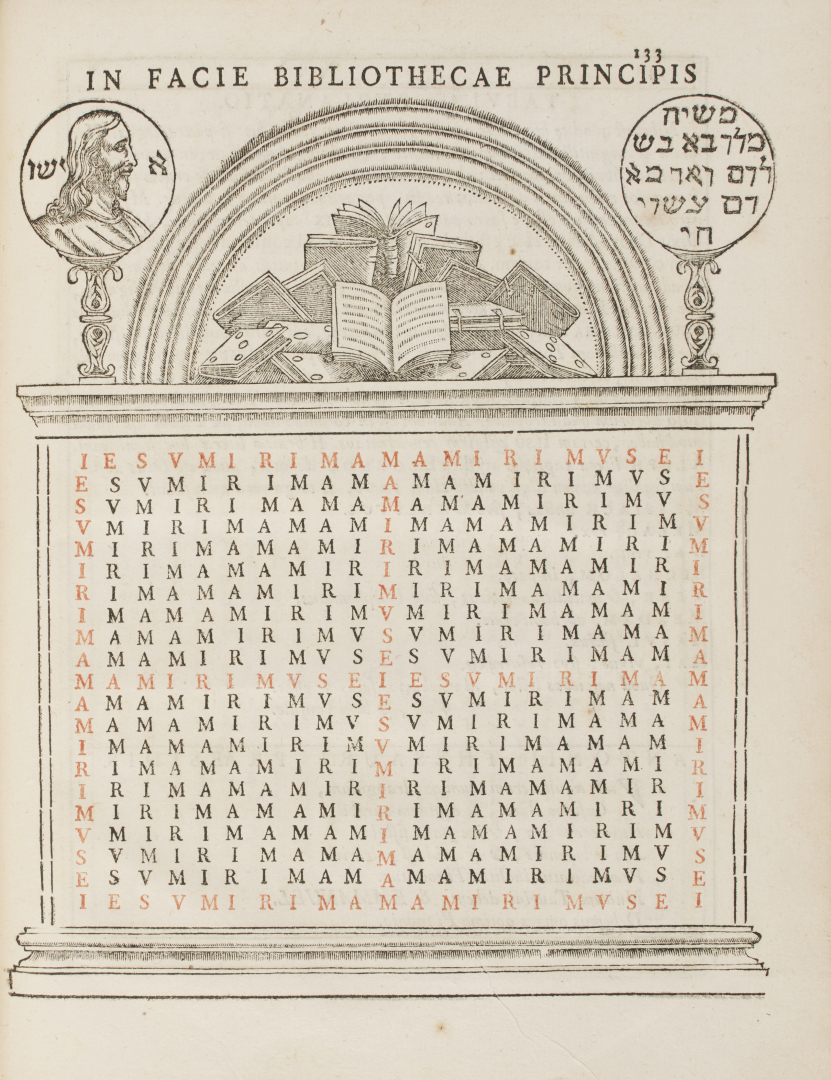 133
IN FACIE BIBLIOTHECAE PRINCIPIS
ישו א
משיח
מלך בא בש
לום ואור מא
דם עשוי
חי
I E S V M I R I M A M A M I R I M V S E I
E S V M I R I M A M A M A M I R I M V S E
S V M I R I M A M A M A M A M I R I M V S
V M I R I M A M A M I M A M A M I R I M V
M I R I M A M A M I R I M A M A M I R I M
I R I M A M A M I R I R I M A M A M I R I
R I M A M A M I R I M I R I M A M A M I R
I M A M A M I R I M V M I R I M A M A M I
M A M A M I R I M V S V M I R I M A M A M
A M A M I R I M V S E S V M I R I M A M A
M A M I R I M V S E I E S V M I R I M A M
A M A M I R I M V S E S V M I R I M A M A
M A M A M I R I M V S V M I R I M A M A M
I M A M A M I R I M V M I R I M A M A M I
R I M A M A M I R I M I R I M A M A M I R
I R I M A M A M I R I R I M A M A M I R I
M I R I M A M A M I R I M A M A M I R I M
V M I R I M A M A M I M A M A M I R I M V
S V M I R I M A M A M A M A M I R I M V S
E S V M I R I M A M A M A M I R I M V S E
I E S V M I R I M A M A M I R I M V S E I